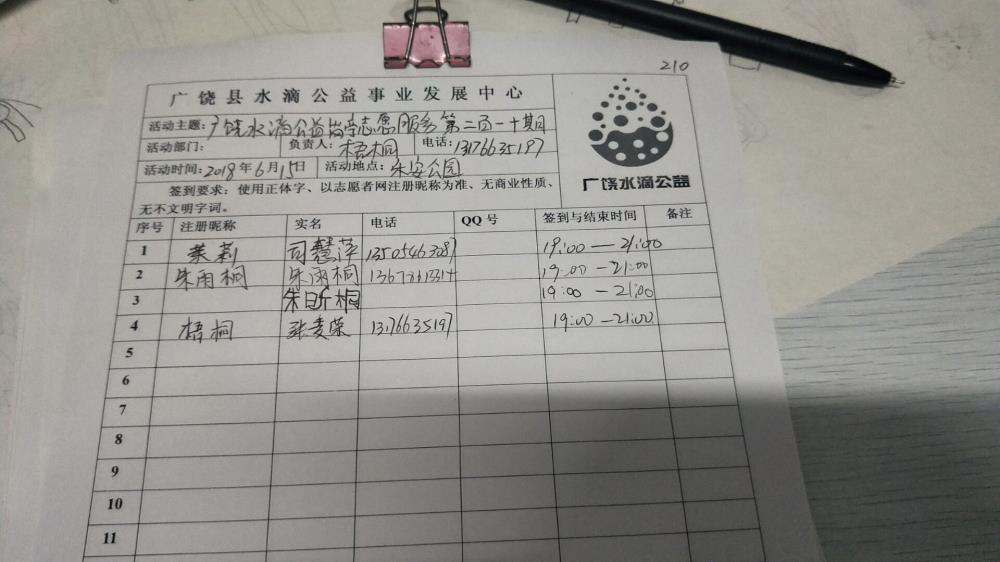 210
广饶县水滴公益事业发展中心
活动主题：广饶水滴公益尚学志愿服务第二百一十期
活动部门： 负责人：梧桐 电话：13176635197
活动时间：2018年6月15日 活动地点：乐安公园
签到要求：使用正体字、以志愿者网注册昵称为准、无商业性质、
无不文明字词。
广饶水滴公益
序号 注册昵称 实名 电话 QQ号 签到与结束时间 备注
1 茉莉 司慧萍 13505463087 19:00—21:00
2 朱雨桐 朱雨桐 19:00—21:00
3 朱昕桐 19:00—21:00
4 梧桐 张麦荣 13176635197 19:00—21:00
5
6
7
8
9
10
11